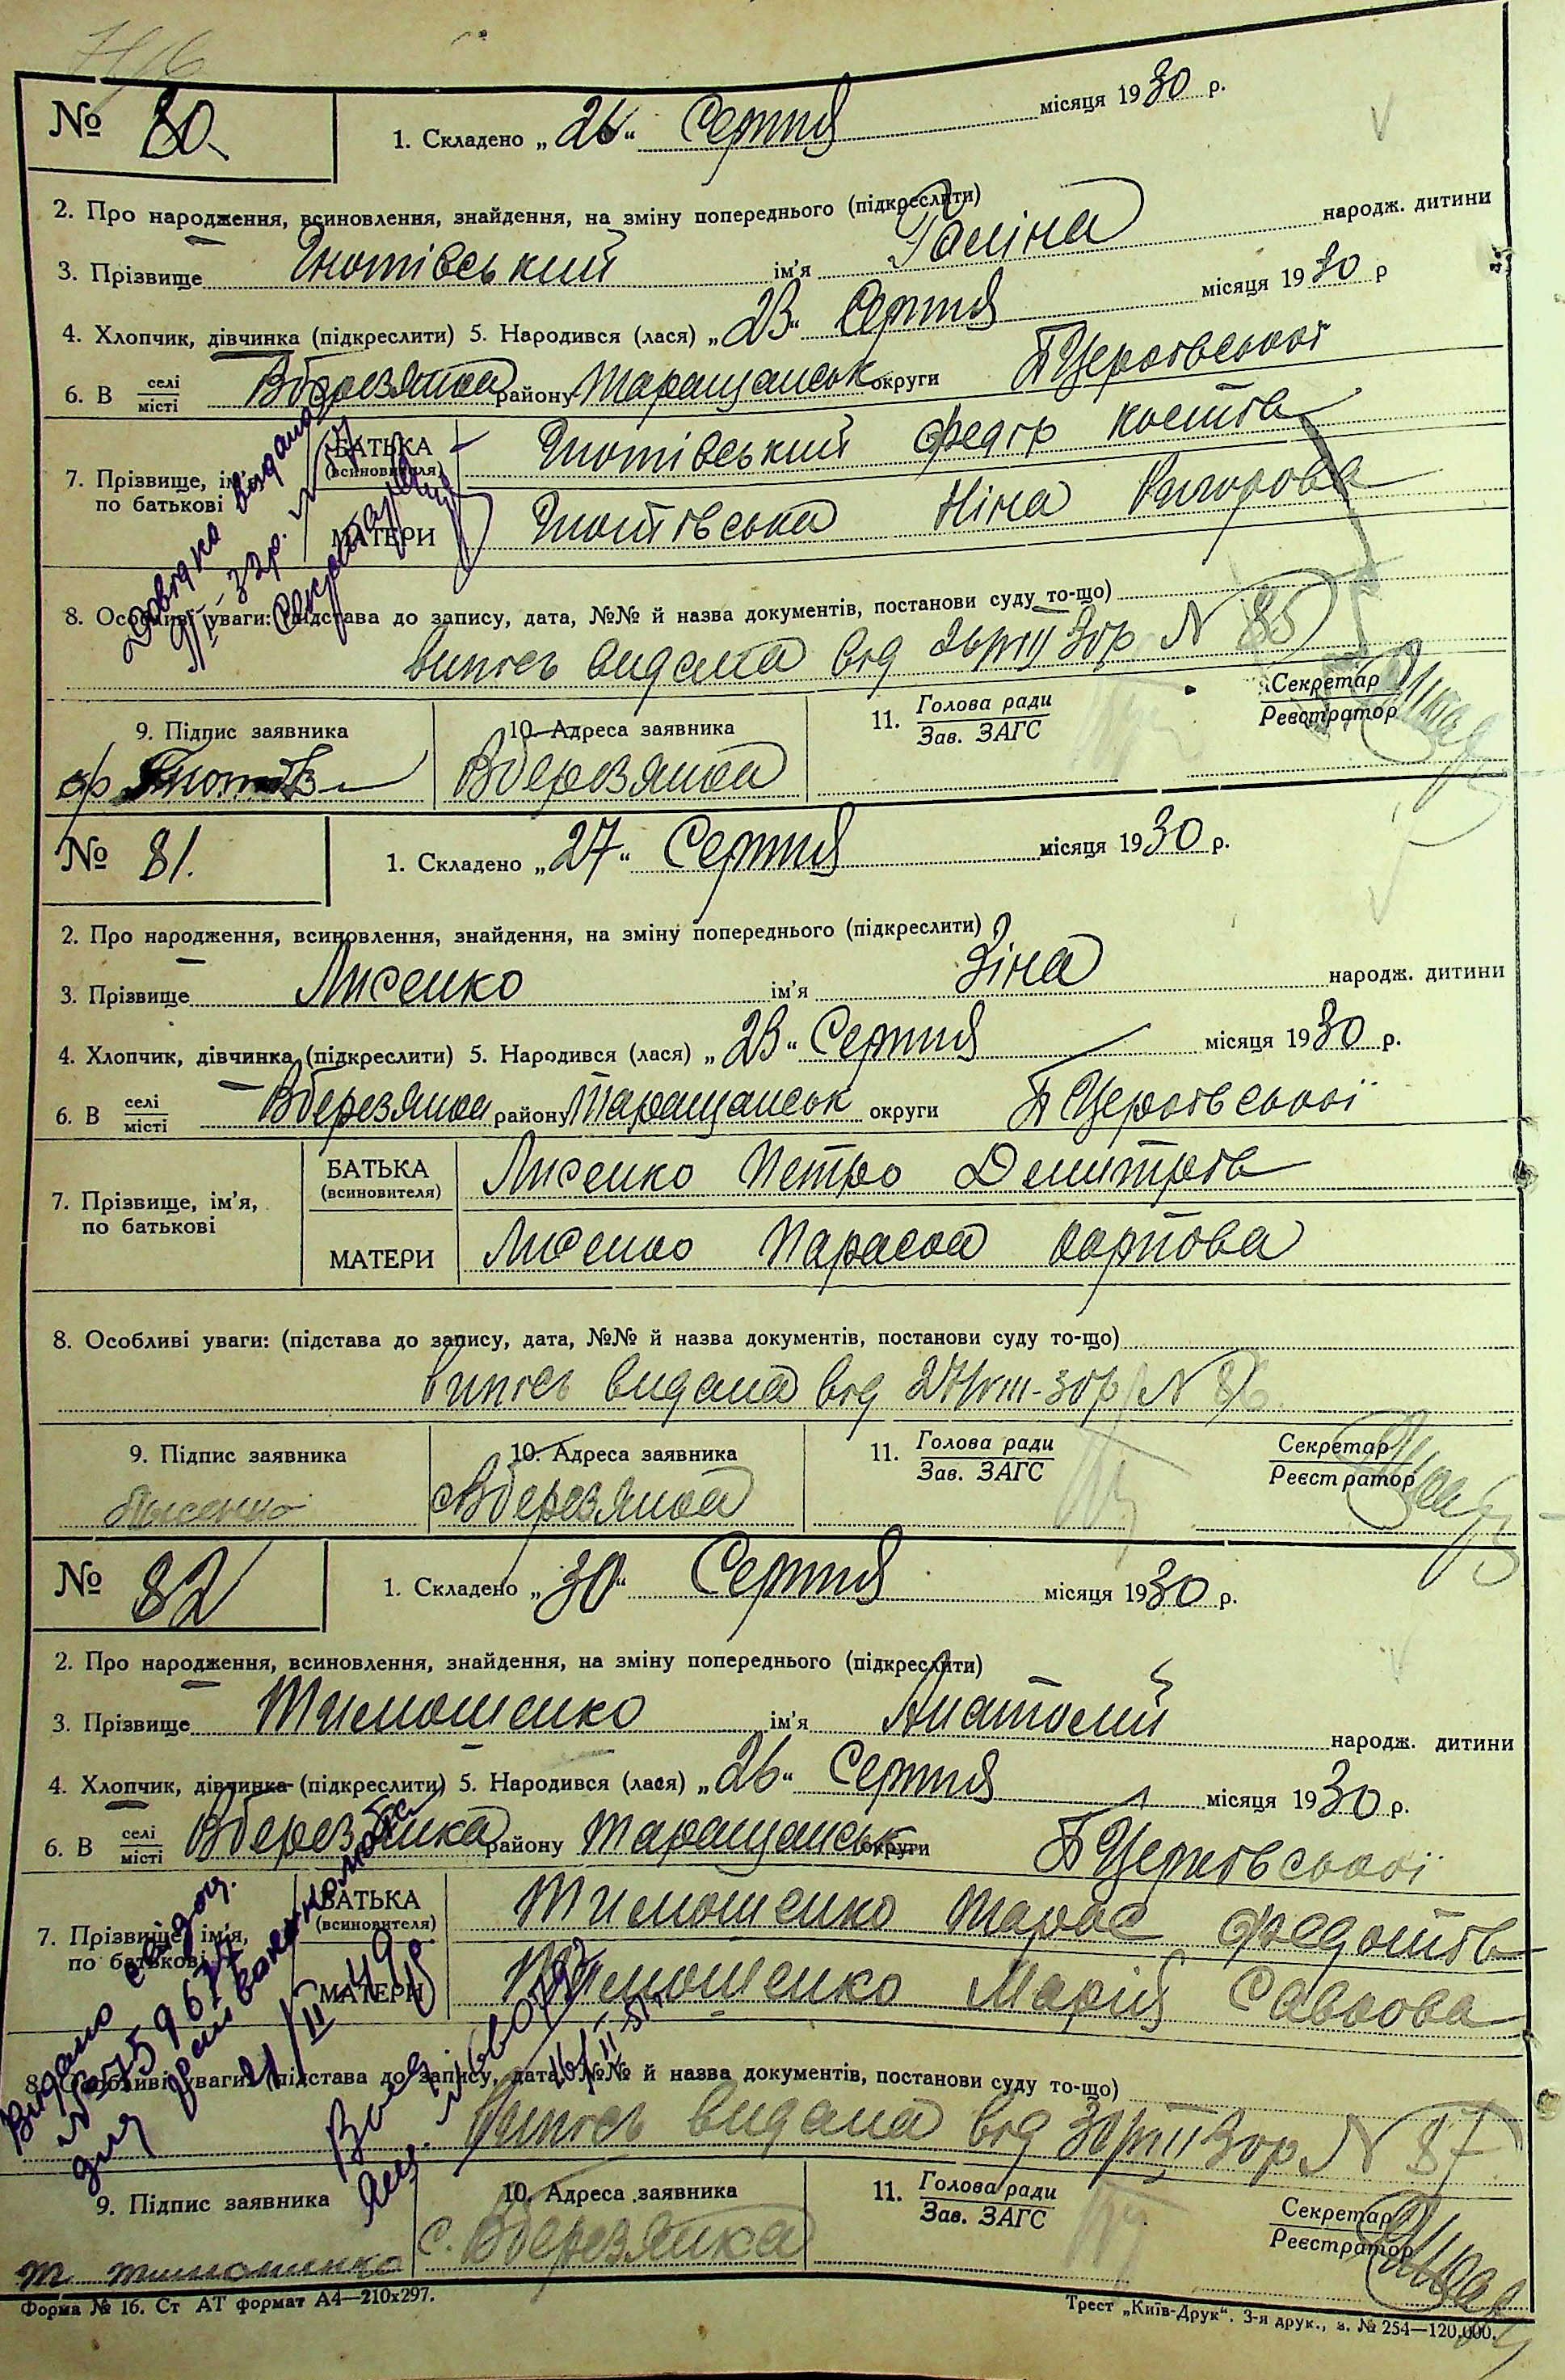 № 80.
1. Складено „26“ Серпня місяця 1930 р.
2. Про народження, всиновлення, знайдення, на зміну попереднього (підкреслити)
3. Прізвище Гнотівський ім'я Галіна народж. дитини
4. Хлопчик, дівчинка (підкреслити) 5. Народився (лася) „23“ Серпня місяця 1930 р
6. В селі місті Вберезянка району Таращанськ округи БЦерковської
7. Прізвище, ім'я, по батькові
БАТЬКА (всиновителя) Гнотівський Федір Костів
МАТЕРИ Гнотівська Ніна Григорова
Довідка видана
32р.
Секретар
8. Особливі уваги: (підстава до запису, дата, №№ й назва документів, постанови суду то-що)
випись видана від 26/VIII 30р N 85
9. Підпис заявника
10. Адреса заявника
11. Голова ради Зав. ЗАГС
Секретар Реєстратор
Вберезянка
№ 81.
1. Складено „27“ Серпня місяця 1930 р.
2. Про народження, всиновлення, знайдення, на зміну попереднього (підкреслити)
3. Прізвище Лисенко ім'я Зіна народж. дитини
4. Хлопчик, дівчинка (підкреслити) 5. Народився (лася) „23“ Серпня місяця 1930 р.
6. В селі місті Вберезянка району Таращанськ округи БЦерковської
7. Прізвище, ім'я, по батькові
БАТЬКА (всиновителя) Лисенко Петро Демитрів
МАТЕРИ Лисенко Параска Карпова
8. Особливі уваги: (підстава до запису, дата, №№ й назва документів, постанови суду то-що)
випись видана від 27/VIII-30р N 86.
9. Підпис заявника
10. Адреса заявника
11. Голова ради Зав. ЗАГС
Секретар Реєстратор
Лысенко
с Вберезянка
№ 82
1. Складено „30“ Серпня місяця 1930 р.
2. Про народження, всиновлення, знайдення, на зміну попереднього (підкреслити)
3. Прізвище Тимошенко ім'я Анатолій народж. дитини
4. Хлопчик, дівчинка (підкреслити) 5. Народився (лася) „26“ Серпня місяця 1930 р.
6. В селі місті Вберезянка району Таращанськ округи БЦерковської
7. Прізвище, ім'я, по батькові
БАТЬКА (всиновителя) Тимошенко Тарас Федотів
МАТЕРИ Тимошенко Марія Савкова
Видано свідоц.
для
8. Особливі уваги: (підстава до запису, дата, №№ й назва документів, постанови суду то-що)
Випись видана від 30/VIII 30р N 87
9. Підпис заявника
10. Адреса заявника
11. Голова ради Зав. ЗАГС
Секретар Реєстратор
Т Тимошенко
с. Вберезянка
Форма № 16. Ст АТ формат А4—210х297.
Трест „Київ-Друк“. 3-я друк., з. № 254—120.000.